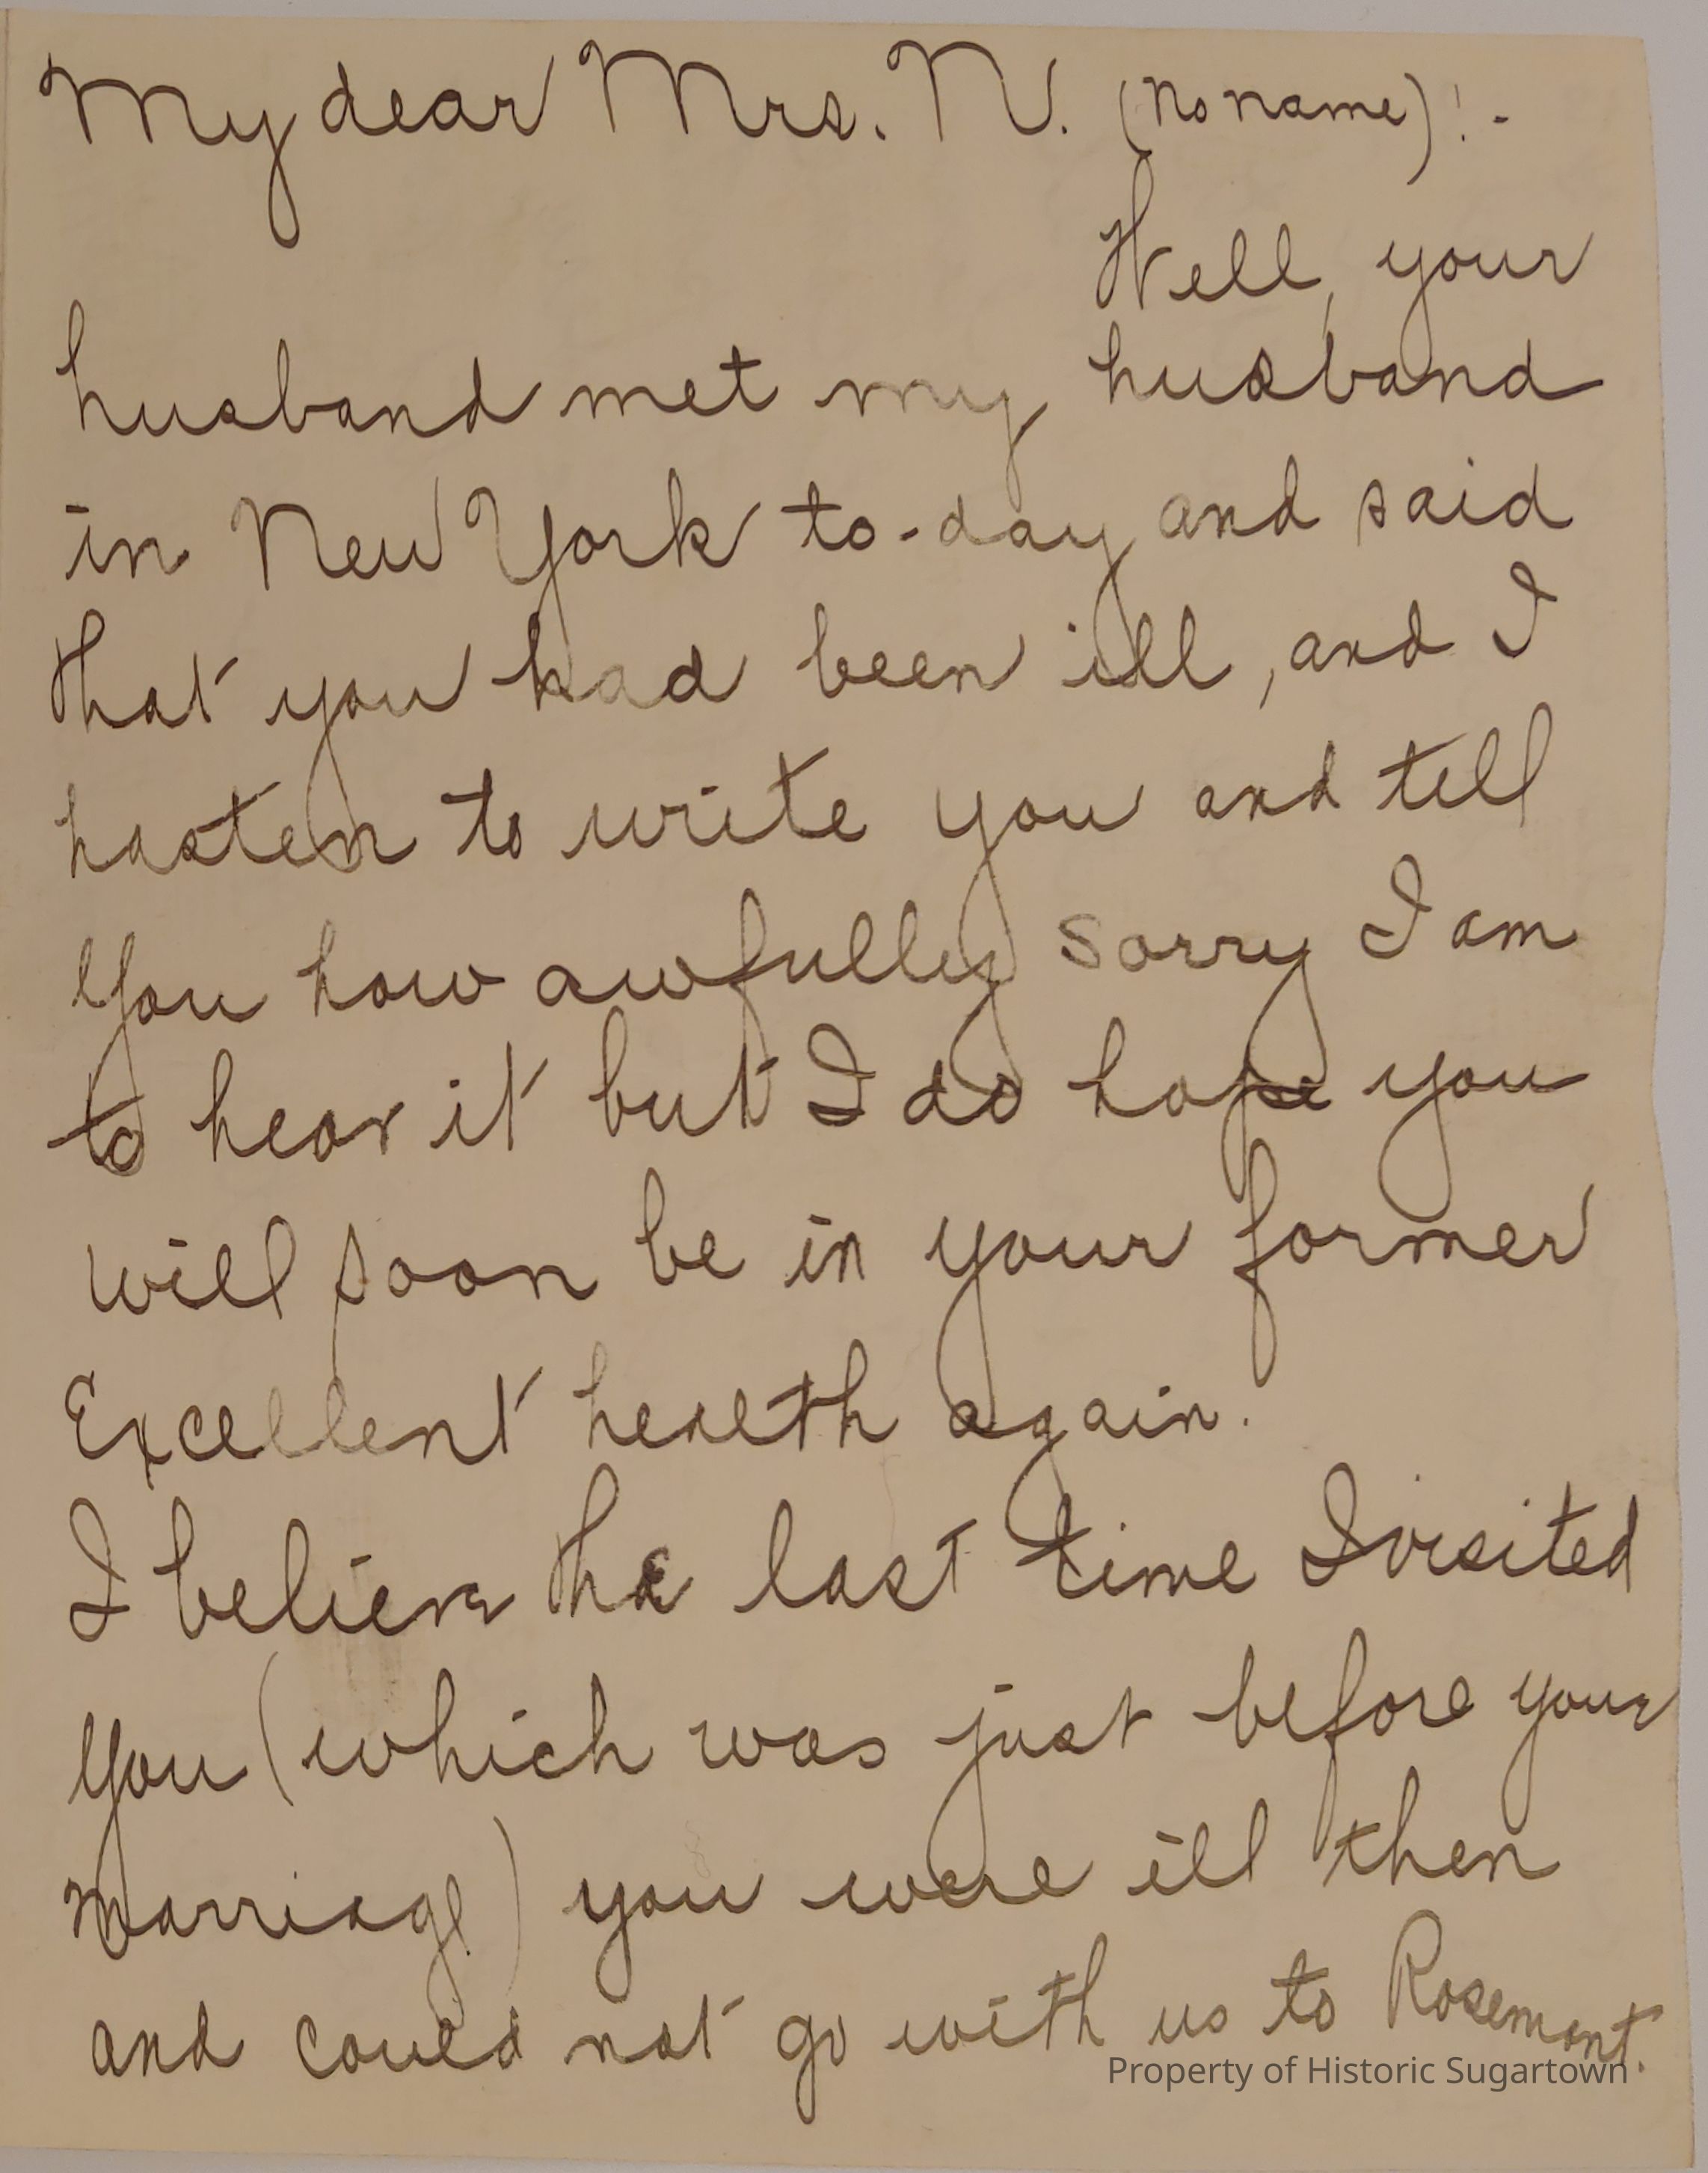 My dear Mrs. N. (No name)! -
Well, your
husband met my husband
in New York to-day and said
that you had been ill, and I
hasten to write you and tell
you how awfully sorry I am
to hear it but I do hope you
will soon be in your former
Excellent health again.
I believe the last time I visited
you (which was just before your
marriage) you were ill then
and could not go with us to Rosemont.
Property of Historic Sugartown